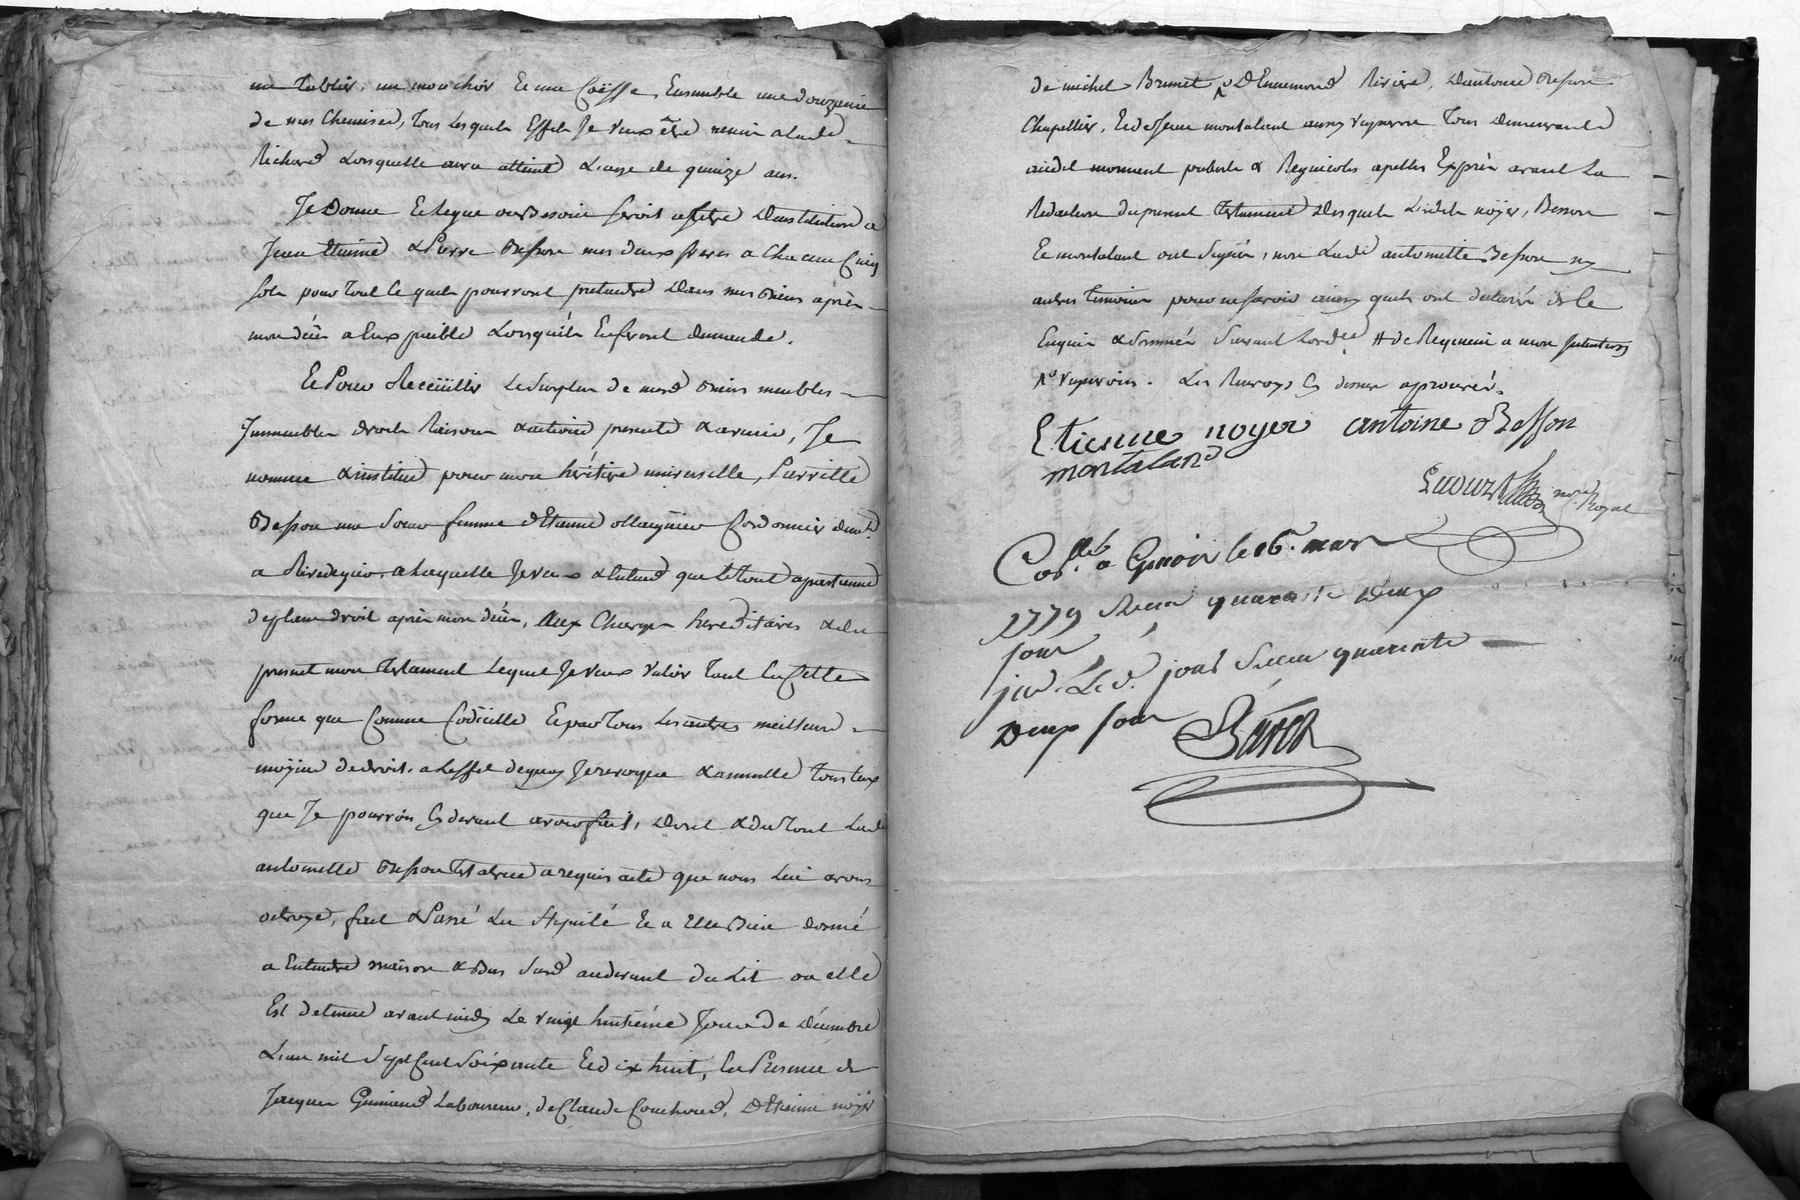 un tablier, un mouchoir Et une Coëffe, Ensemble une douzaine
de mes Chemises, tous lesquels Effets Je veux être remis a lade
Richard Lorsquelle aura atteint L'age de quinze ans.
Je Donne Et legue ou Besoin seroit a titre D'institution a
Jean Etienne & Pierre Besson mes deux freres a Chacun Cinq
sols pour tout Ce quils pourront pretendre Dans mes Biens après
mon décès a Eux païable Lorsqu'ils En feront demande.
Et Pour Recëüillir le Surplus de mesd Biens meubles
Immeubles droits Raisons & actions presents & avenir, Je
nomme & institue pour mon héritiere universelle, Pierrette
Besson ma Soeur femme d'Etienne Cordonnier demt
a Rivedegier, a Laquelle Je veux & Entend que le tout apartienne
de plein droit après mon décès, aux Charges hereditaires & du
present mon testament Lequel Je veux valoir tant En Cette
forme que Comme Codicille Et par tous Les autres meilleurs
moyens de droit, a Leffet dequoy Je revoque & annulle tous Ceux
que Je pourrois Cy devant avoir fait, Dont & du tout Lade
antoinette Besson testatrice a requis acte que nous Lui avons
octroyé, fait & Passé Lu Stipulé Et a Elle Bien donné
a Entendre maison & Bas Susd audevant du Lit ou elle
Est detenue avant midy Le vingt huitième Jour de Décembre
L'an mil Sept Cent Soixante Et dix huit, En Presence de
Jacques Laboureur, de Claude Couchoud, D'Etienne noyer
de michel Brunet, D'Ennemond Riviere, D'antoine Besson
Chapellier, Et de Jean montaland aussy vigneron tous demeurants
audit mornant puberts & Regnicoles apellés Exprès avant La
Redaction du present testament Desquels Lesdits noyer, Besson
Et montaland ont Signé, non Lade antoinette Besson ny
autres temoins pour ne savoir ainsy quils ont declaré de Ce
Enquis & Sommés Suivant Lordce
vigneron. Les Renvoys Cy dessus aprouvés.
Etienne noyer antoine Besson
montaland
nore Royal
Collé a Givors le 6. mars
1779 Recu quarante Deux
sous
jns. Led. jour Recu quarante
Deux sous